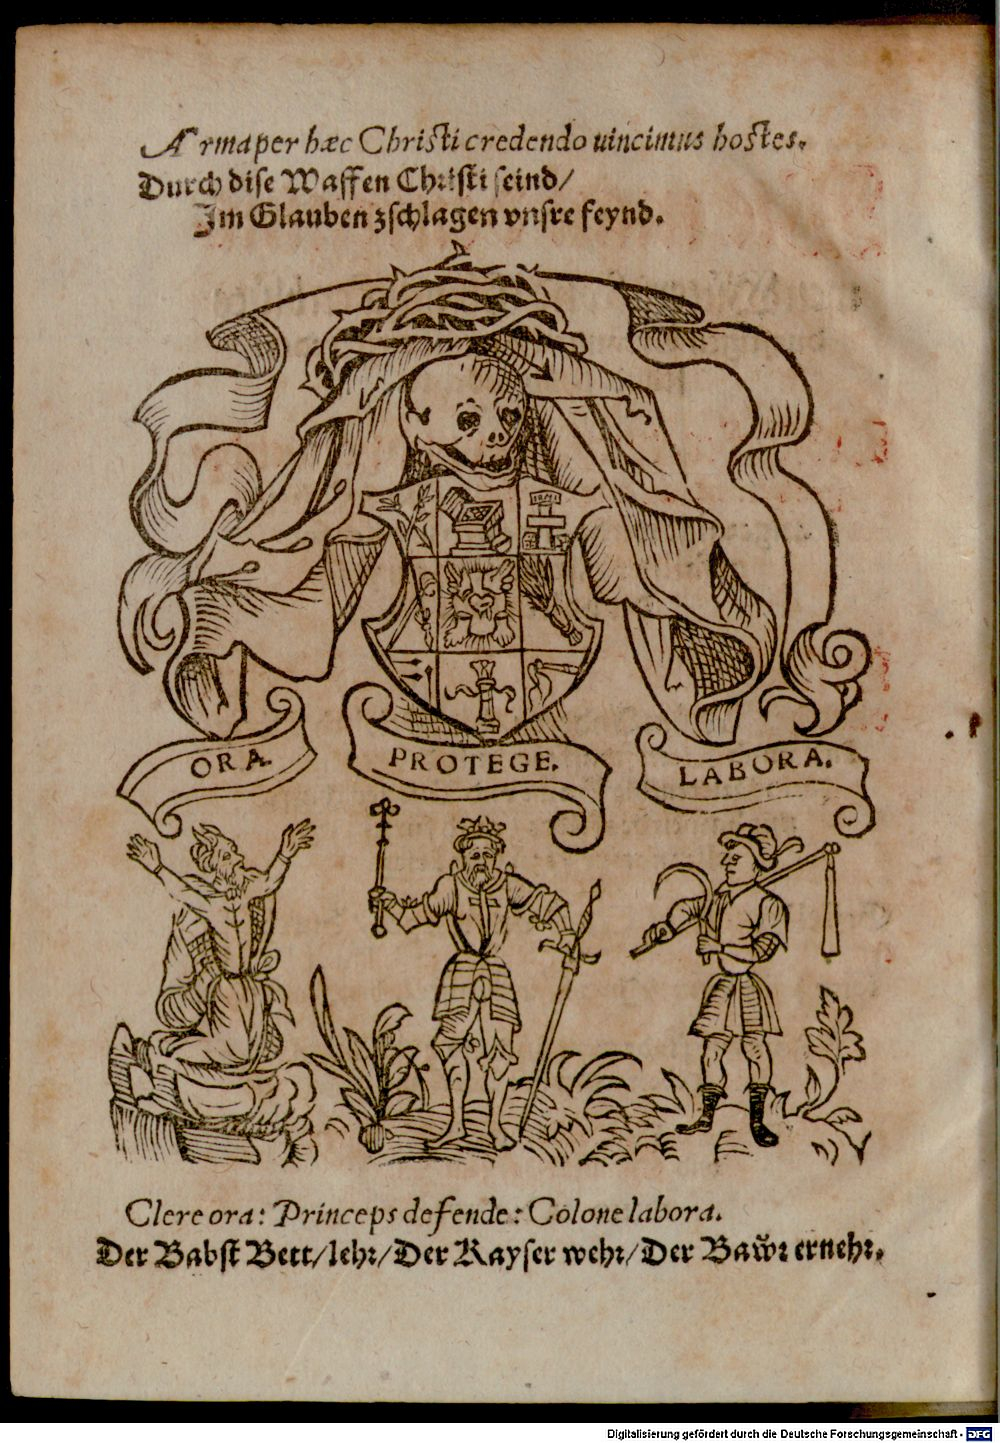 Arma per hæc Christi credendo uincimus hostes.
Durch dise Waffen Christi seind/
Im Glauben zschlagen vnsre feynd.
ORA.
PROTEGE.
LABORA.
Clere ora: Princeps defende: Colone labora.
Der Babst Bett/lehr/Der Kayser wehr/Der Baw̌r ernehr.
Digitalisierung gefördert durch die Deutsche Forschungsgemeinschaft - DFG